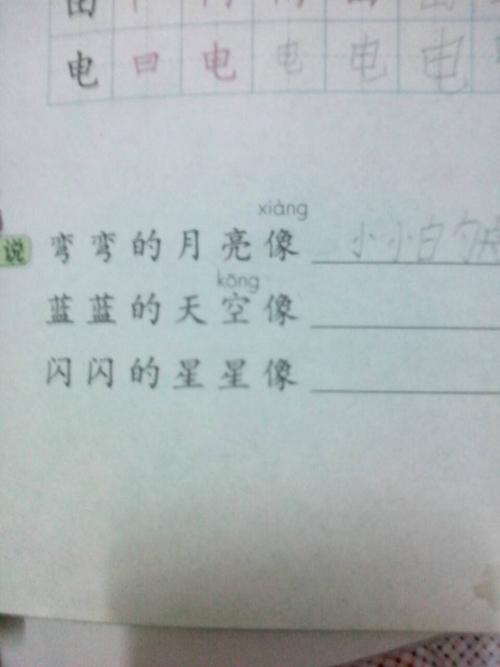 电 电 电 电 电
xiàng
说 弯弯的月亮像 小小白勺
kōng
蓝蓝的天空像
闪闪的星星像